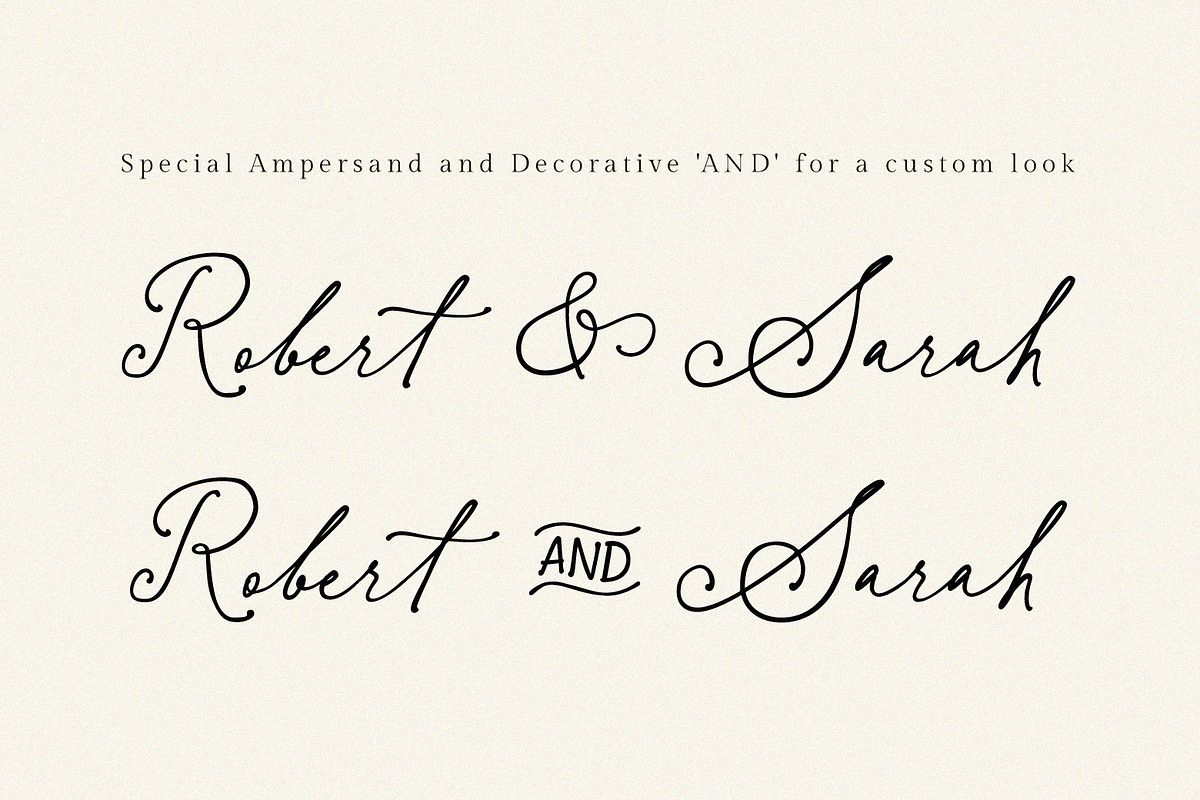 Special Ampersand and Decorative 'AND' for a custom look
Robert & Sarah
Robert AND Sarah